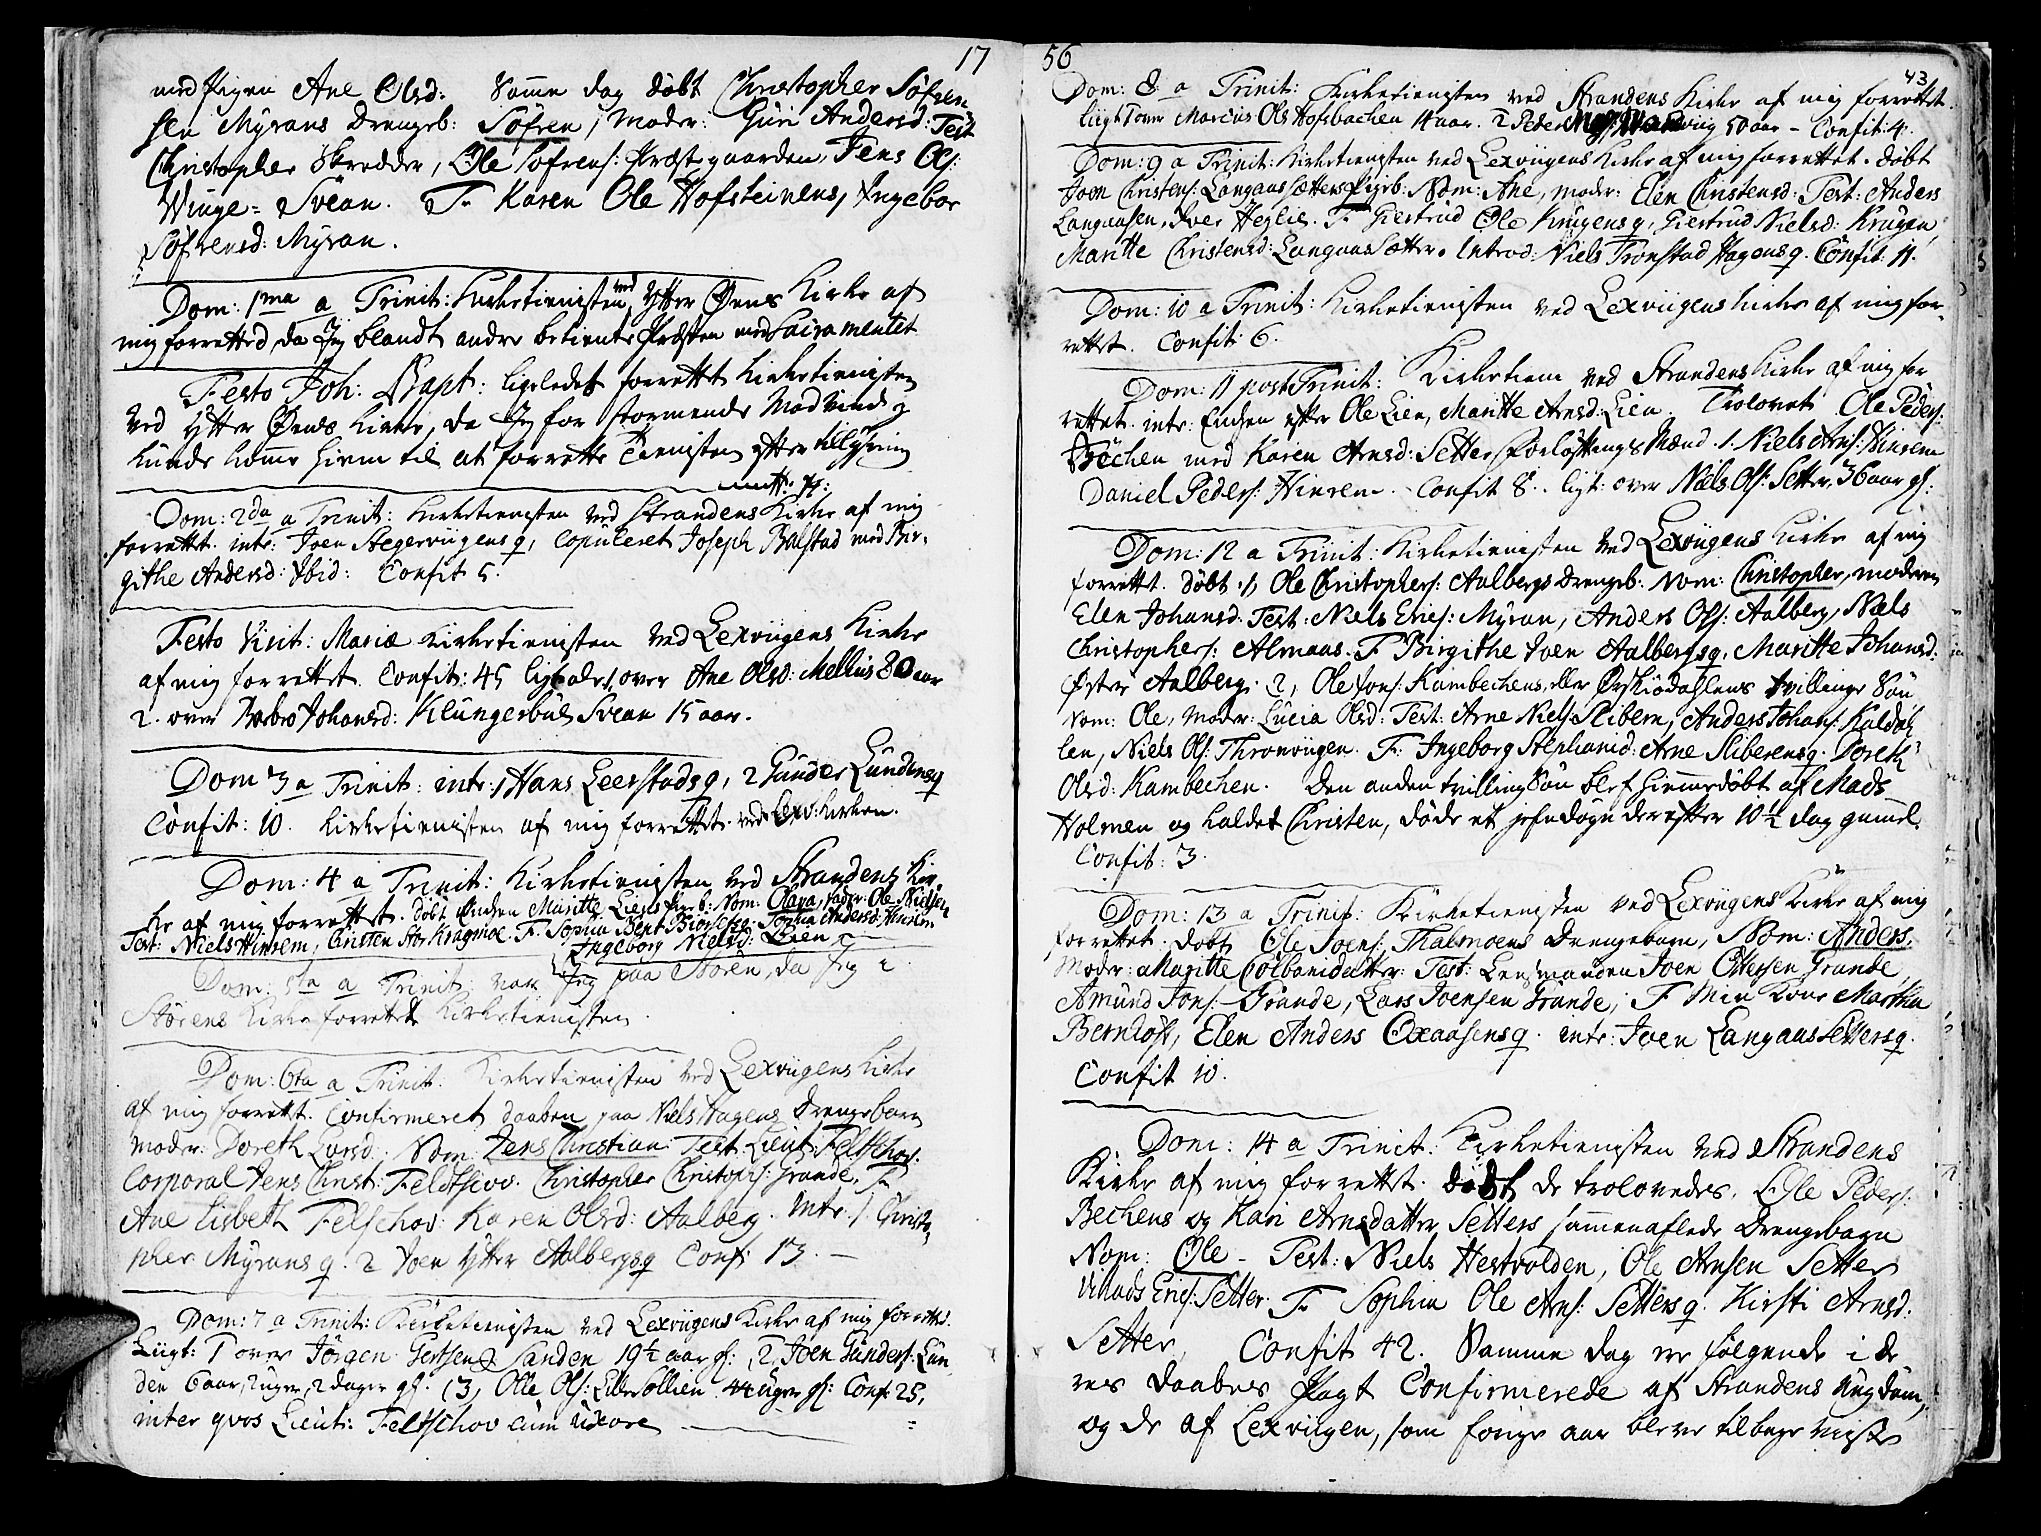 17
med Pigen Ane Olsd: Samme dag døbt Christopher Søfren
sen Myrans Drengeb: Søfren, Moder: Guri Andersd: Test
Christopher Skredder, Ole Søfrens: Præstgaarden, Jens Ols:
Winge-Svean. F. Karen Ole Hofsteinens, Ingebor
Søfrensd: Myran.
Dom: 1ma a Trinit: Kirketienisten ved Ytter Øens Kirke af
mig forretted, da Jeg blandt andre betiente Præsten med Sacramentet
Festo Joh: Bapt: ligeledes forrettet Kirketienisten
ved Ytter Øens Kirke, da Jeg for stormende Modvind ej
kunde komme hiem til at forrette Tienisten efter tillysning
Dom: 2da a Trinit: Kirketienisten ved Strandens Kirke af mig
forrettet. intr: Joen Hegerviigens q, Copuleret Joseph Balstad med Bir-
githe Andersd: Ibid: Confit 5.
Festo Visit: Mariæ Kirketienisten ved Lexviigens Kirke
af mig forrettet. Confit: 45 over Ane Olsd: Mellius 80 aar
2. over Johansd: Klungerbul Svean 15 aar.
Dom 3 a Trinit: intr: 1 Hans Leerstads q, 2 Gunder Lundens q
Confit: 10. Kirketienisten af mig forrettet ved Lexv: Kirken.
Dom: 4 a Trinit: Kirketienisten ved Strandens Kir
ke af mig forrettet. døbt Enchen Maritte Liens Nom: Olava, Fader: Ole Nielsen
Test: Niels Hinrem, Christen Stor Kragmoe. F. Sophia Bent Sophia Andersd: Hinrem
Ingeborg Nielsd: Lien
Dom: 5ta a Trinit: var Jeg paa Støren, da Jeg i
Størens Kirke forrettede Kirketienisten.
Dom: 6ta a Trinit: Kirketienisten ved Lexviigens Kirke
af mig forrettet. Confirmeret daaben paa Niels Hagens Drengebarn
Moder: Doreth Larsd: Nom: Jens Christian Test: Lieut: Feltschov.
Corporal Jens Christ: Feldtschov. Christopher Christophs: Grande, F.
Ane Lisbeth Feltschov: Karen Olsd: Aalberg. Intr: 1. Christo
pher Myrans q. 2 Joen Ytter Aalbergs q Conf: 13.
Dom: 7 a Trinit: Kirketienisten ved Lexviigens Kirke af mig forrettet.
Liigt: 1 over Jørgen Sanden 19½ aar gl: 2, Joen Gunders: Lun
den 6 aar, 2 uger, 2 dager gl. (3, Olle Ols: uger gl: Conf: 25,
inter qvos Lieut: Feltschov cum uxore
56
43
Dom: 8 a Trinit: Kirketienisten ved Strandens Kirke af mig forrettet.
Liigt 1 over Marcus Ols Hofsbachen 4 aar. 2 Peder 50 aar - Confit: 4.
Dom: 9 a Trinit: Kirketienisten ved Lexviigens Kirke af mig forrettet. døbt
Joen Christens: Langaas Sætters Pigeb: Nom: Ane, Moder: Elen Christensd: Test: Anders
Langaasen, Iver Heglie. F. Giertrud Ole Krugens q, Giertrud Nielsd: Krugen,
Maritte Christensd: Langaas Sætter. Introd: Niels Tronstad Hagens q. Confit: 11.
Dom: 10 a Trinit: Kirketienisten ved Lexviigens Kirke af mig for-
rettet. Confit: 6.
Dom: 11 post Trinit: Kirketien ved Strandens Kirke af mig for
rettet. intr: Enchen efter Ole Lien, Maritte Arnsd: Lien. Trolovet Ole Peders:
Bechen med Karen Arnsd: Setter, Forløftnings Mænd. 1. Niels Arns: Hinrem
Daniel Peders: Hinrem. Confit 8. ligt: over Niels Ols: Setter 36 aar gl:
Dom: 12 a Trinit: Kirketienisten ved Lexviigens Kirke af mig
forrettet. døbt 1, Ole Christophers: Aalbergs Drengeb: Nom: Christopher, moderen
Elen Johansd: Test: Niels Erics: Myran, Anders Ols: Aalberg, Niels
Christophers: Almaas. F. Birgithe Joen Aalbergs q, Maritte Johansd:
Øster Aalberg. 2, Ole Jons: Kambechens, eller Ørskiødahlens tvillinge Søn
Nom: Ole, Moder: Lucia Olsd: Test: Arne Niels: Sliberen, Anders Johans: Kaldah
len, Niels Ols: Thronviigen. F. Ingeborg Stephanid: Arne Sliberens q. Doreth
Olsd: Kambechen. Den anden tvilling Søn blef hiemmedøbt af Mads
Holmen og kaldet Christen, døde et jefndøgn derefter 10½ dag gamel.
Confit: 3.
Dom: 13 a Trinit: Kirketienisten ved Lexviigens Kirke af mig
forrettet. døbt Ole Joens: Thalmoens Drengebarn, Nom: Anders,
Moder: Maritte Colbanidatter: Test: Lensmanden Joen Ottersen Grande,
Amund Jons: Grande, Lars Joensen Grande, F. Min Kone Martha
Berndost, Elen Anders Oxaasens q. intr: Joen Langaas Setters q.
Confit 10.
Dom: 14 a Trinit: Kirketienisten ved Strandens
Kirke af mig forrettet. døbt de trolovedes, Ole Peders:
Bechens og Kari Arnsdatter Setters sammenaflede Drengebarn
Nom: Ole - Test: Niels Hestvolden, Ole Arnsen Setter
Erics: Setter. F. Sophia Ole Arns: Setters q. Kirsti Arnsd:
Setter, Confit 42. Samme dag er følgende i de
res Daabes Pagt Confirmerede af Strandens Ungdom,
og de af Lexviigen, som forige aar bleve tilbage viiste